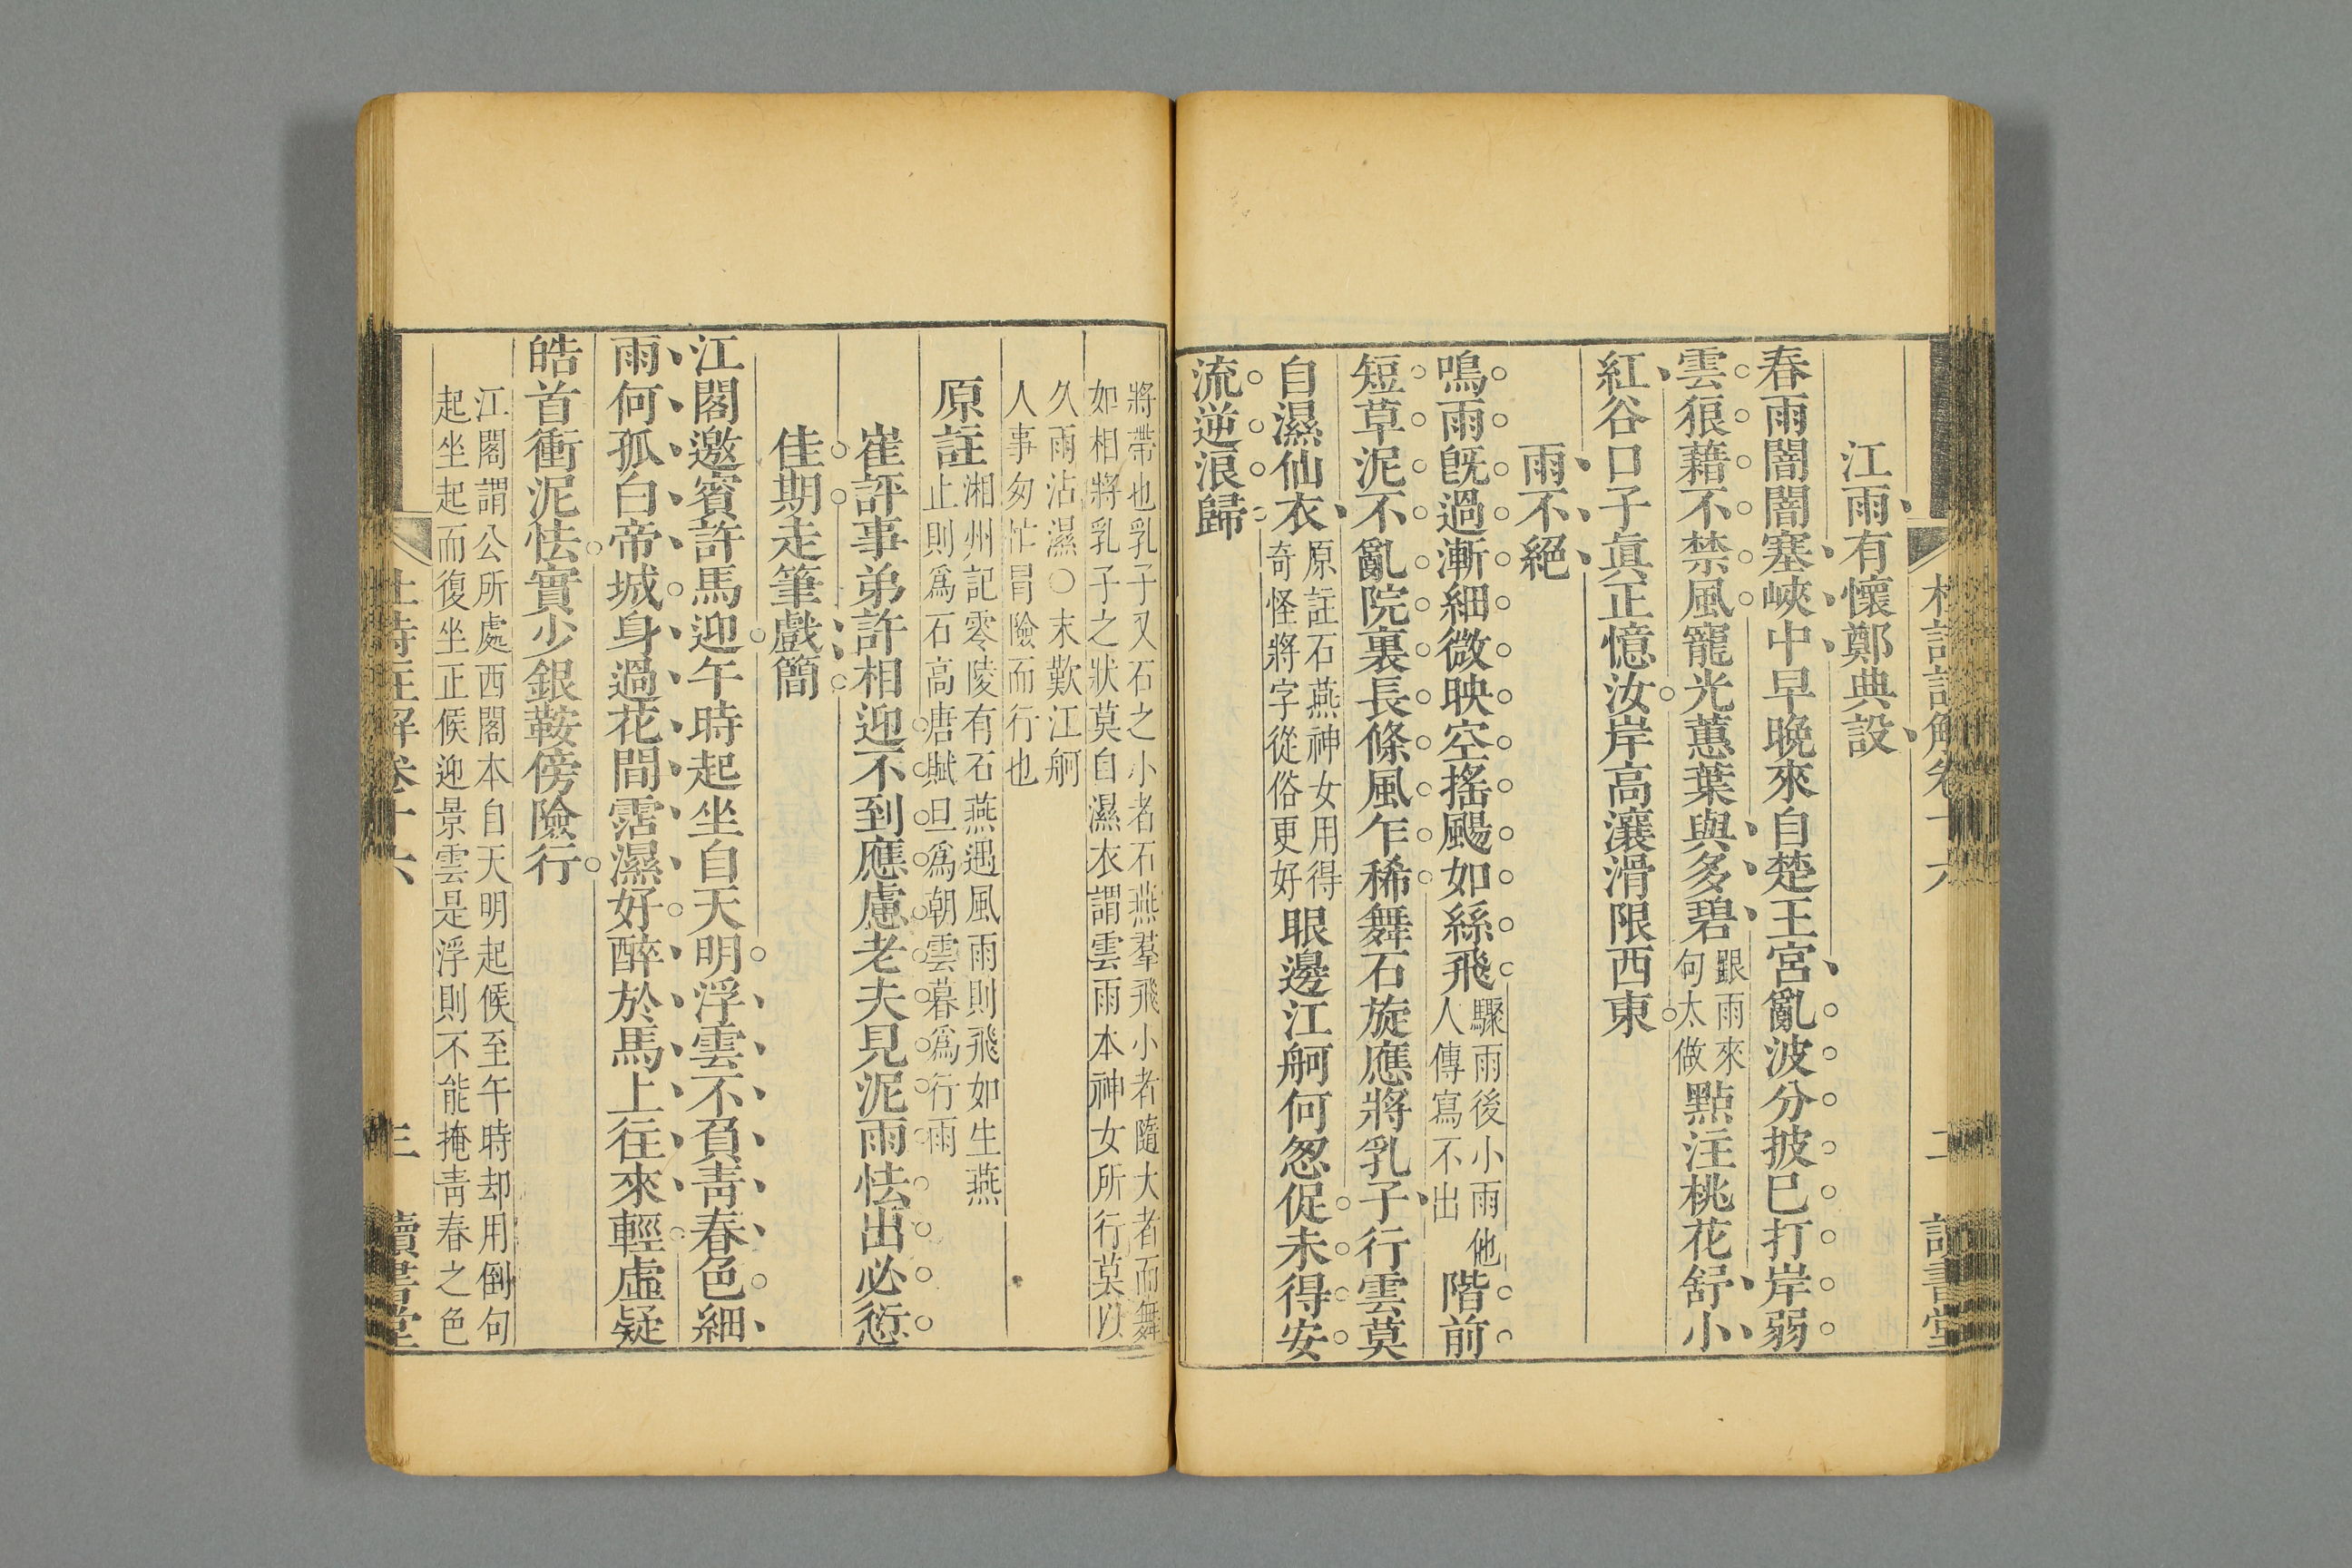 江雨有懷鄭典設
春雨闇闇塞峽中早晚來自楚王宮亂波分披已打岸弱
雲狼藉不禁風寵光蕙葉與多碧
跟雨來
句太做
點注桃花舒小
紅谷口子眞正憶汝岸高瀼滑限西東
雨不絕
鳴雨旣過漸細微映空搖颺如絲飛
驟雨後小雨他
人傳寫不出
階前
短草泥不亂院裏長條風乍稀舞石旋應將乳子行雲莫
自濕仙衣
原註石燕神女用得
奇怪將字從俗更好
眼邊江舸何怱促未得安
流逆浪歸
將帶也乳子又石之小者石燕羣飛小者隨大者而舞
如相將乳子之狀莫自濕衣謂雲雨本神女所行莫以
久雨沾濕○末歎江舸
人事匆忙冒險而行也
原註
湘州記零陵有石燕遇風雨則飛如生燕
止則爲石高唐賦旦爲朝雲暮爲行雨
崔評事弟許相迎不到應慮老夫見泥雨怯出必愆
佳期走筆戲簡
江閣邀賓許馬迎午時起坐自天明浮雲不負靑春色細
雨何孤白帝城身過花間霑濕好醉於馬上往來輕虛疑
皓首衝泥怯實少銀鞍傍險行
江閣謂公所處西閣本自天明起候至午時却用倒句
起坐起而復坐正候迎景雲是浮則不能掩靑春之色
杜詩註解卷十六
三
讀書堂